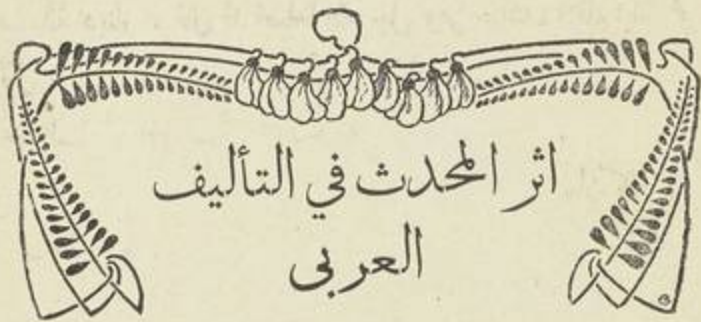 اثر المحدث في التأليف
العربى